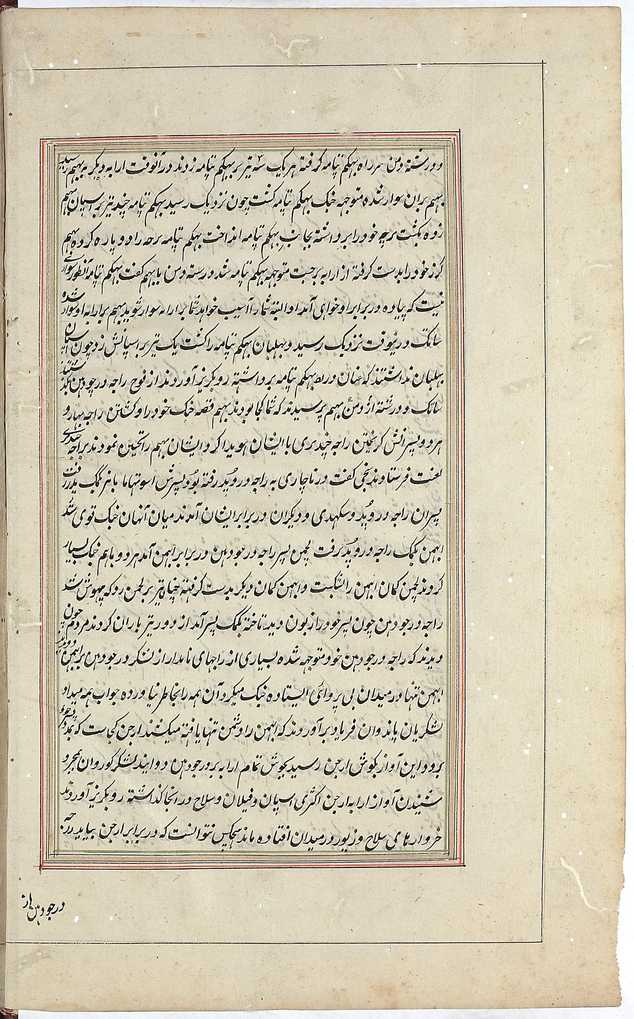 و ورشتهٔ دمن سر راه بهیکم پتامه گرفته هر یک سه تیر بر بهیکم پتامه زدند در آنوقت ارابه دیگر به بهیم رسید
بهیم بران سوار شده متوجه جنک بهیکم پتامه کشت چون نزدیک رسید بهیکم پتامه چند تیر بر اسپان بهیم
زده بکشت برچه خود را برداشته بجانب بهیکم پتامه انداخت بهیکم پتامه برچه را دو پاره کرد و بهیم
کرز خود را بدست گرفته از ارابه برجست متوجه بهیکم پتامه شد ورسته دمن با بهیم گفت بهیکم پتامه آنطور سواری
نیست که پیاده در برابر او خوای آمد او البته شما را آسیب خواهد شما بر ارابه سوار شوید بهیم بر ارابه او سوار شد و
ساتک درینوقت نزدیک رسید و بهلبان بهیکم پتامه را کشت یک تیر بر اسپانش زد چون اسپان
بهلبان نداشتند که عنان در بهیکم پتامه برداشته رو بکریز آوردند از فوج راجه درجودهن بگذشتند
ساتک و ورشتهٔ دمن بهیم پرسیدند که شما کجا بودند بهیم قصه جنک خود را و کشتن راجه بهار و
هر دو پسرانش کریختن راجه چیدیری با ایشان هویدا کرد و ایشان بهیم را تحسین نمودند بر راجه چندیری
لعنت فرستادند نجی گفت در ناچاری به راجه دروپد رفته بود پسرش اسوتهاما با نزلک پدر رفت
پسران راجه دروپد و سکهندی و دیکران در برابر ایشان آمدند میان آنهان جنک قوی شد
ابهمن بکمک راجه دروپد گرفت لچمن پسر راجه درجودهن در برابر ابهمن آمد هر دو با هم جنک بسیار
کردند لچمن کمان ابهمن را شکست و ابهمن کمان دیکر بدست گرفته چنان تیر بر لچمن زد که بیهوش شد
راجه درجودهن چون پسر خود را زبون دید تاخته بکمک پسر آمد از دور تیر باران کردند مردم چون
دیدند که راجه درجودهن خود متوجه شده بسیاری از راجهای نامدار از لشکر درجودهن بر ابهمن دویدند
ابهمن تنها در میدان بی پروائی ایستاده جنک میکرد آن همه را بخاطر نیاورده جواب همه میداد
لشکریان پاندوان فریاد برآوردند که ابهمن را دشمن تنها یافته میکشند ارجن کجاست که بمدد پسر خود
برود این آواز بکوش ارجن رسید بکوش تمام ارابه بر درجودهن دوانید لشکر کوروان بمجرد
شنیدن آواز ارابه ارجن اکثری اسپان و فیلان و سلاح در انجا گذاشته رو بکریز آوردند
خروارهای سلاح و زیور در میدان افتاده ماند هیچکس نتوانست که در برابر ارجن بیاید راجه
درجودهن از